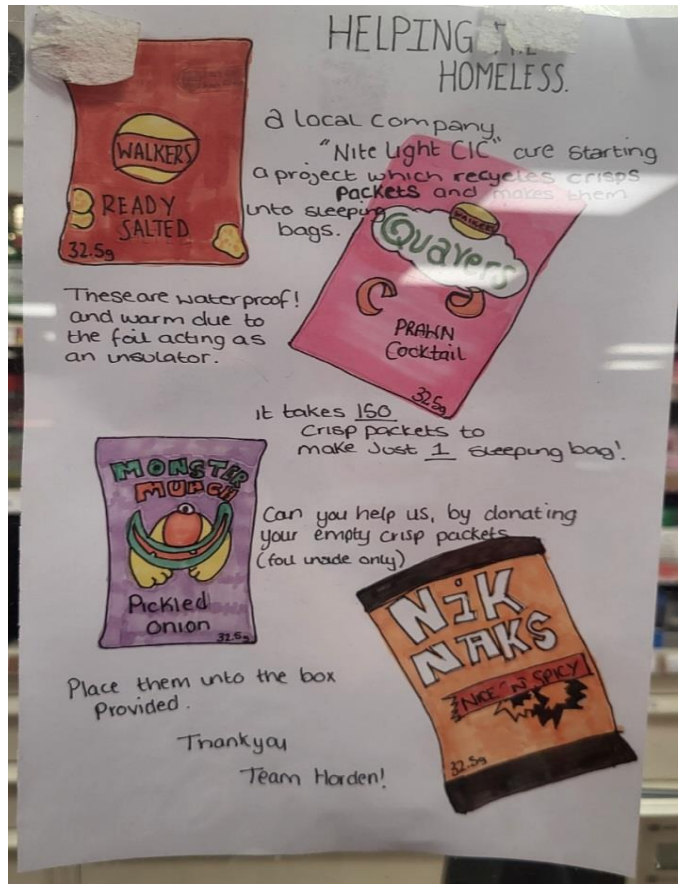 HELPING THE
HOMELESS.
a local company
"Nite Light CIC" are starting
a project which recycles crisps
packets and makes them
into sleeping
bags.
WALKERS
READY
SALTED
32.5g
WALKERS
Quavers
PRAWN
Cocktail
32.5g
These are waterproof!
and warm due to
the foil acting as
an insulator.
it takes 150
crisp packets to
make just 1 sleeping bag!
MONSTER
MUNCH
Pickled
onion
32.5g
Can you help us, by donating
your empty crisp packets
(foil inside only)
NiK
NAKS
NICE "N" SPICY
32.5g
Place them into the box
Provided.
Thankyou
Team Horden!